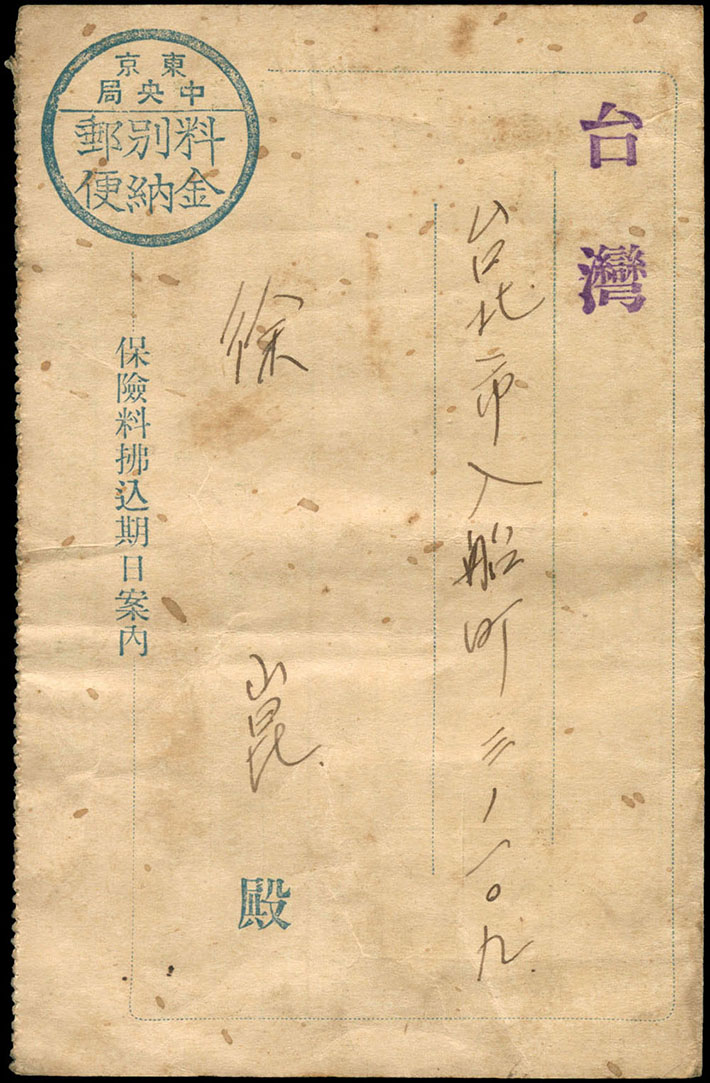 台灣
台北市入船町三ノ一〇九
徐 崑 殿
東京
中央局
料金
別納
郵便
保險料拂込期日案内